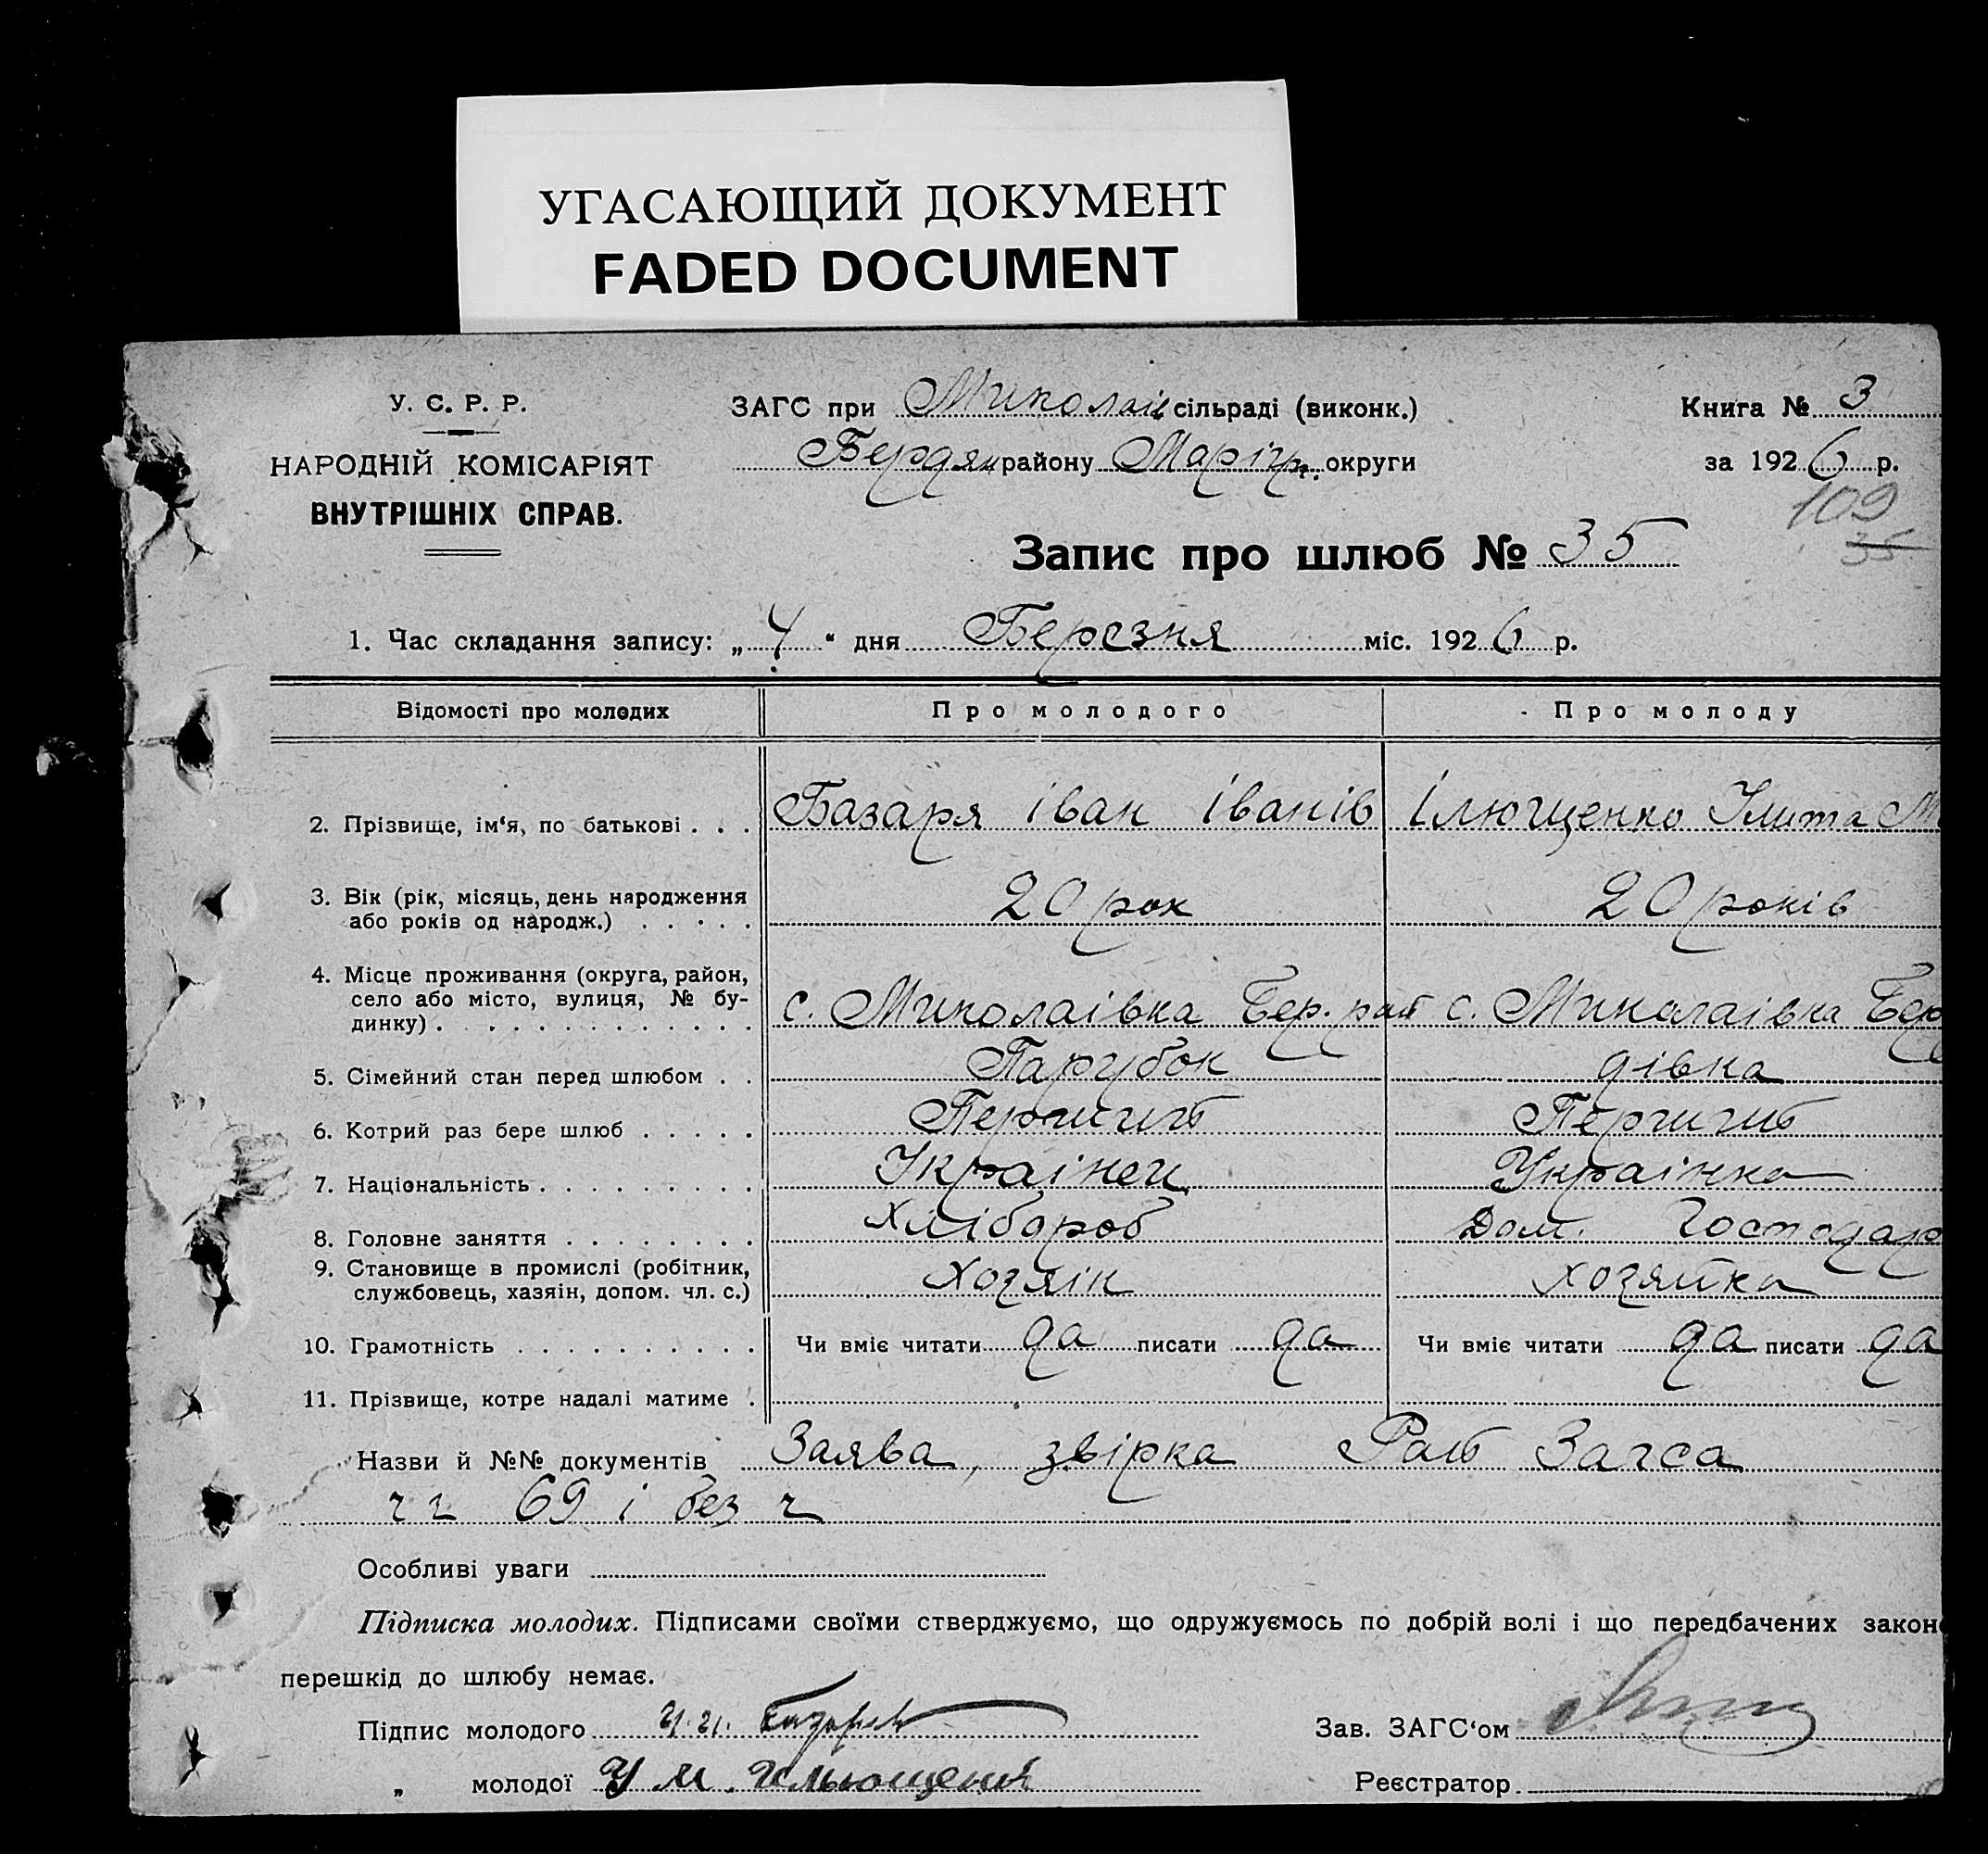 УГАСАЮЩИЙ ДОКУМЕНТ
FADED DOCUMENT
У. С. Р. Р.
НАРОДНІЙ КОМІСАРІЯТ
ВНУТРІШНІХ СПРАВ.
ЗАГС при Миколаів сільраді (виконк.)
Бердян району Маріуп. округи
Книга № 3
за 1926 р.
109
35
Запис про шлюб № 35
1. Час складання запису: „ 4 “ дня Березня міс. 1926 р.
Відомості про молодих Про молодого Про молоду
2. Прізвище, ім‘я, по батькові . . . Базаря іван іванів Ілющенко Улита М
3. Вік (рік, місяць, день народження
або років од народж.) . . . . . 20 рок 20 років
4. Місце проживання (округа, район,
село або місто, вулиця, № бу-
динку) . . . . . . . . . . . . с. Миколаівка Бер. рай с. Миколаівка Бер
5. Сімейний стан перед шлюбом . . Парубок дівка
6. Котрий раз бере шлюб . . . . . Перший Перший
7. Національність . . . . . . . . . Украінец Украінка
8. Головне заняття . . . . . . . . Хлібороб Дом. Господар
9. Становище в промислі (робітник,
службовець, хазяін, допом. чл. с.) Хозяін хозяйка
10. Грамотність . . . . . . . . . . Чи вміє читати да писати да Чи вміє читати да писати да
11. Прізвище, котре надалі матиме .
Назви й №№ документів Заява, звірка Рай Загса
чч 69 і без ч
Особливі уваги
Підписка молодих. Підписами своїми стверджуємо, що одружуємось по добрій волі і що передбачених закон
перешкід до шлюбу немає.
Підпис молодого И. И.
Зав. ЗАГС‘ом
„ молодої У М
Реєстратор